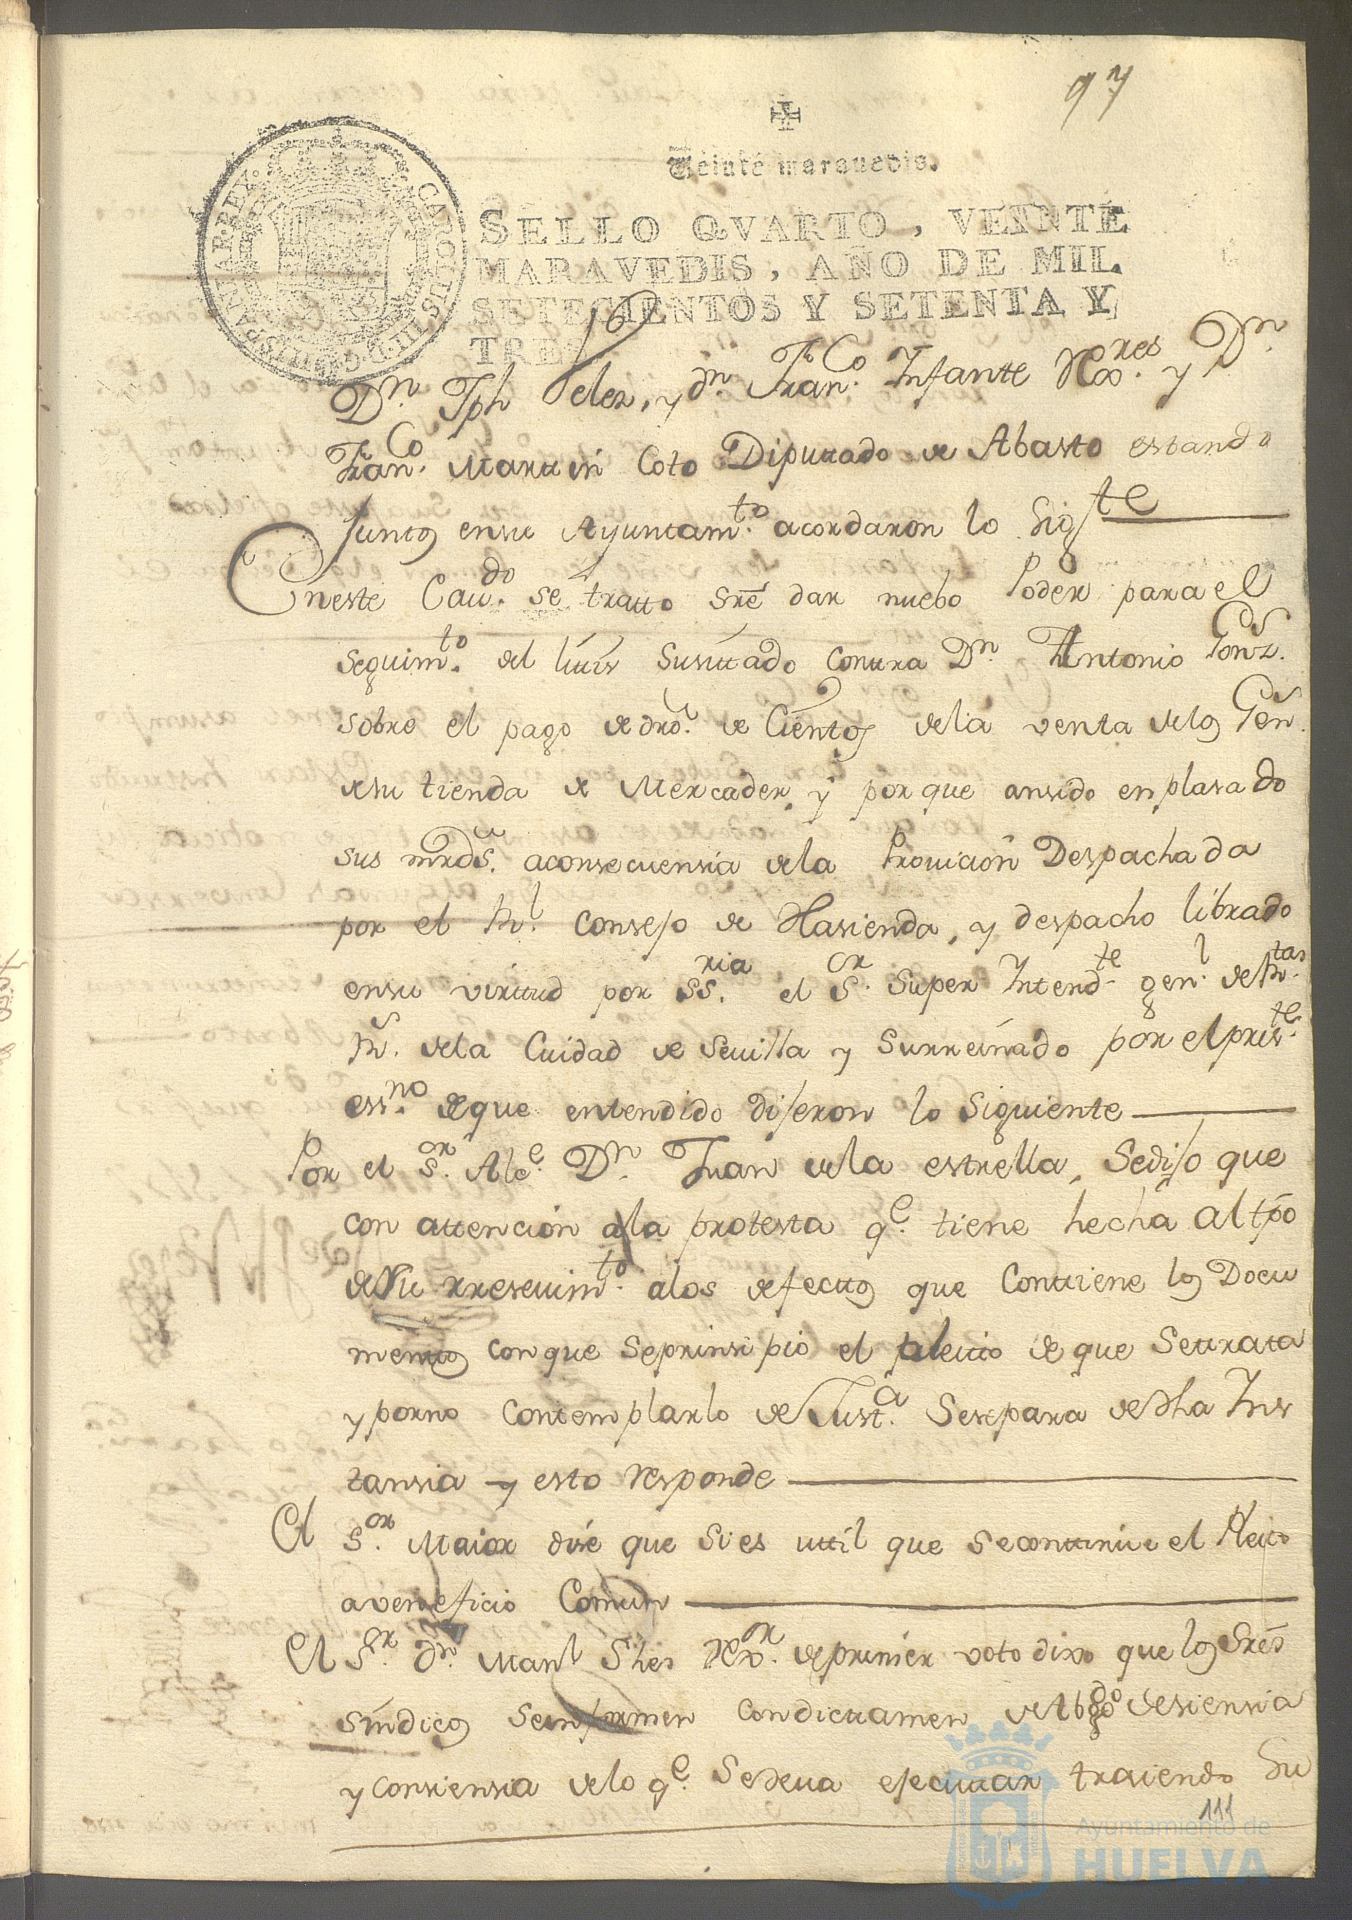 97
Veinte maravedis.
SELLO QVARTO, VEINTE
MARAVEDIS, AÑO DE MIL
SETECIENTOS Y SETENTA Y
TRES
CAROLUS III D G HISPANIAR REX
Dn. Jph Velez, y dn. Franco. Infante Rexres. y Dn
Franco. Martin Coto Diputado de Abasto estando
Juntos en su Ayuntamto. acordaron lo Sigte
En este Cavdo. se tratto sre dar nuebo Poder para el
seguimto. del litis susuttado contra Dn. Antonio Gonz.
sobre el pago de dros. de Cientos de la venta de los Gen.
de su tienda de Mercader, y porque an sido en plasado
sus mrds. a consecuensia de la Provicion Despachada
por el Rl. Consejo de Hasienda, y despacho librado
en su virttud por Ssria. el Sor. Super Intendte. genl. de Rtas.
Rs. de la Cuidad de Sevilla y Surreinado por el prste.
essno. de que entendido dijeron lo Siguiente
Por el Sor. Alce. Dn. Juan de la estrella, Se dijo que
con attencion a la protesta qe. tiene hecha al tpo
de su rresevimto. a los defecttos que Conttiene los Docu
menttos con que se prinsipio el pleitto de que Se ttrata
y por no Contemplarlo de Justa. Se separa de dha Ins
tansia y esto responde
El Sor. Maior dise que Si es uttil que se conttinue el Pleito
a veneficio Comun
El Sr. dn. Manl Shes Rexor. de primer voto dixo que los Sres
sindicos Se informen con dicttamen de Abgdo de siensia
y consiensia de lo qe. Se deva ejecuttar trayendo Su
111
Ayuntamiento de
HUELVA